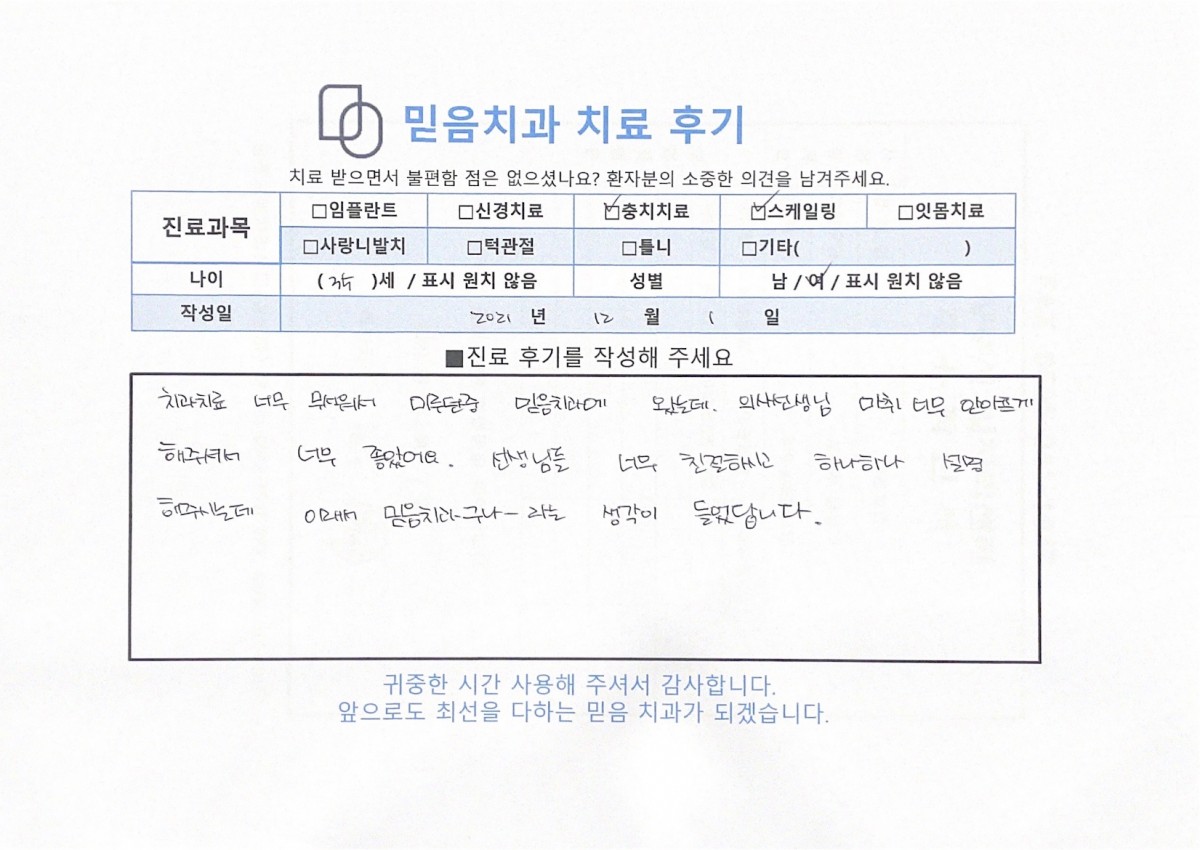 믿음치과 치료 후기
치료 받으면서 불편함 점은 없으셨나요? 환자분의 소중한 의견을 남겨주세요.
진료과목 □임플란트 □신경치료 ☑충치치료 ☑스케일링 □잇몸치료
□사랑니발치 □턱관절 □틀니 □기타( )
나이 ( )세 / 표시 원치 않음 성별 남 / 여 / 표시 원치 않음
작성일 2021 년 12 월 1 일
■진료 후기를 작성해 주세요
치과치료 너무 무서워서 미루던중 믿음치과에 왔는데. 의사선생님 마취 너무 안아프게
해주셔서 너무 좋았어요. 선생님들 너무 친절하시고 하나하나 설명
해주시는데 이래서 믿음치과구나~ 라는 생각이 들었답니다.
귀중한 시간 사용해 주셔서 감사합니다.
앞으로도 최선을 다하는 믿음 치과가 되겠습니다.